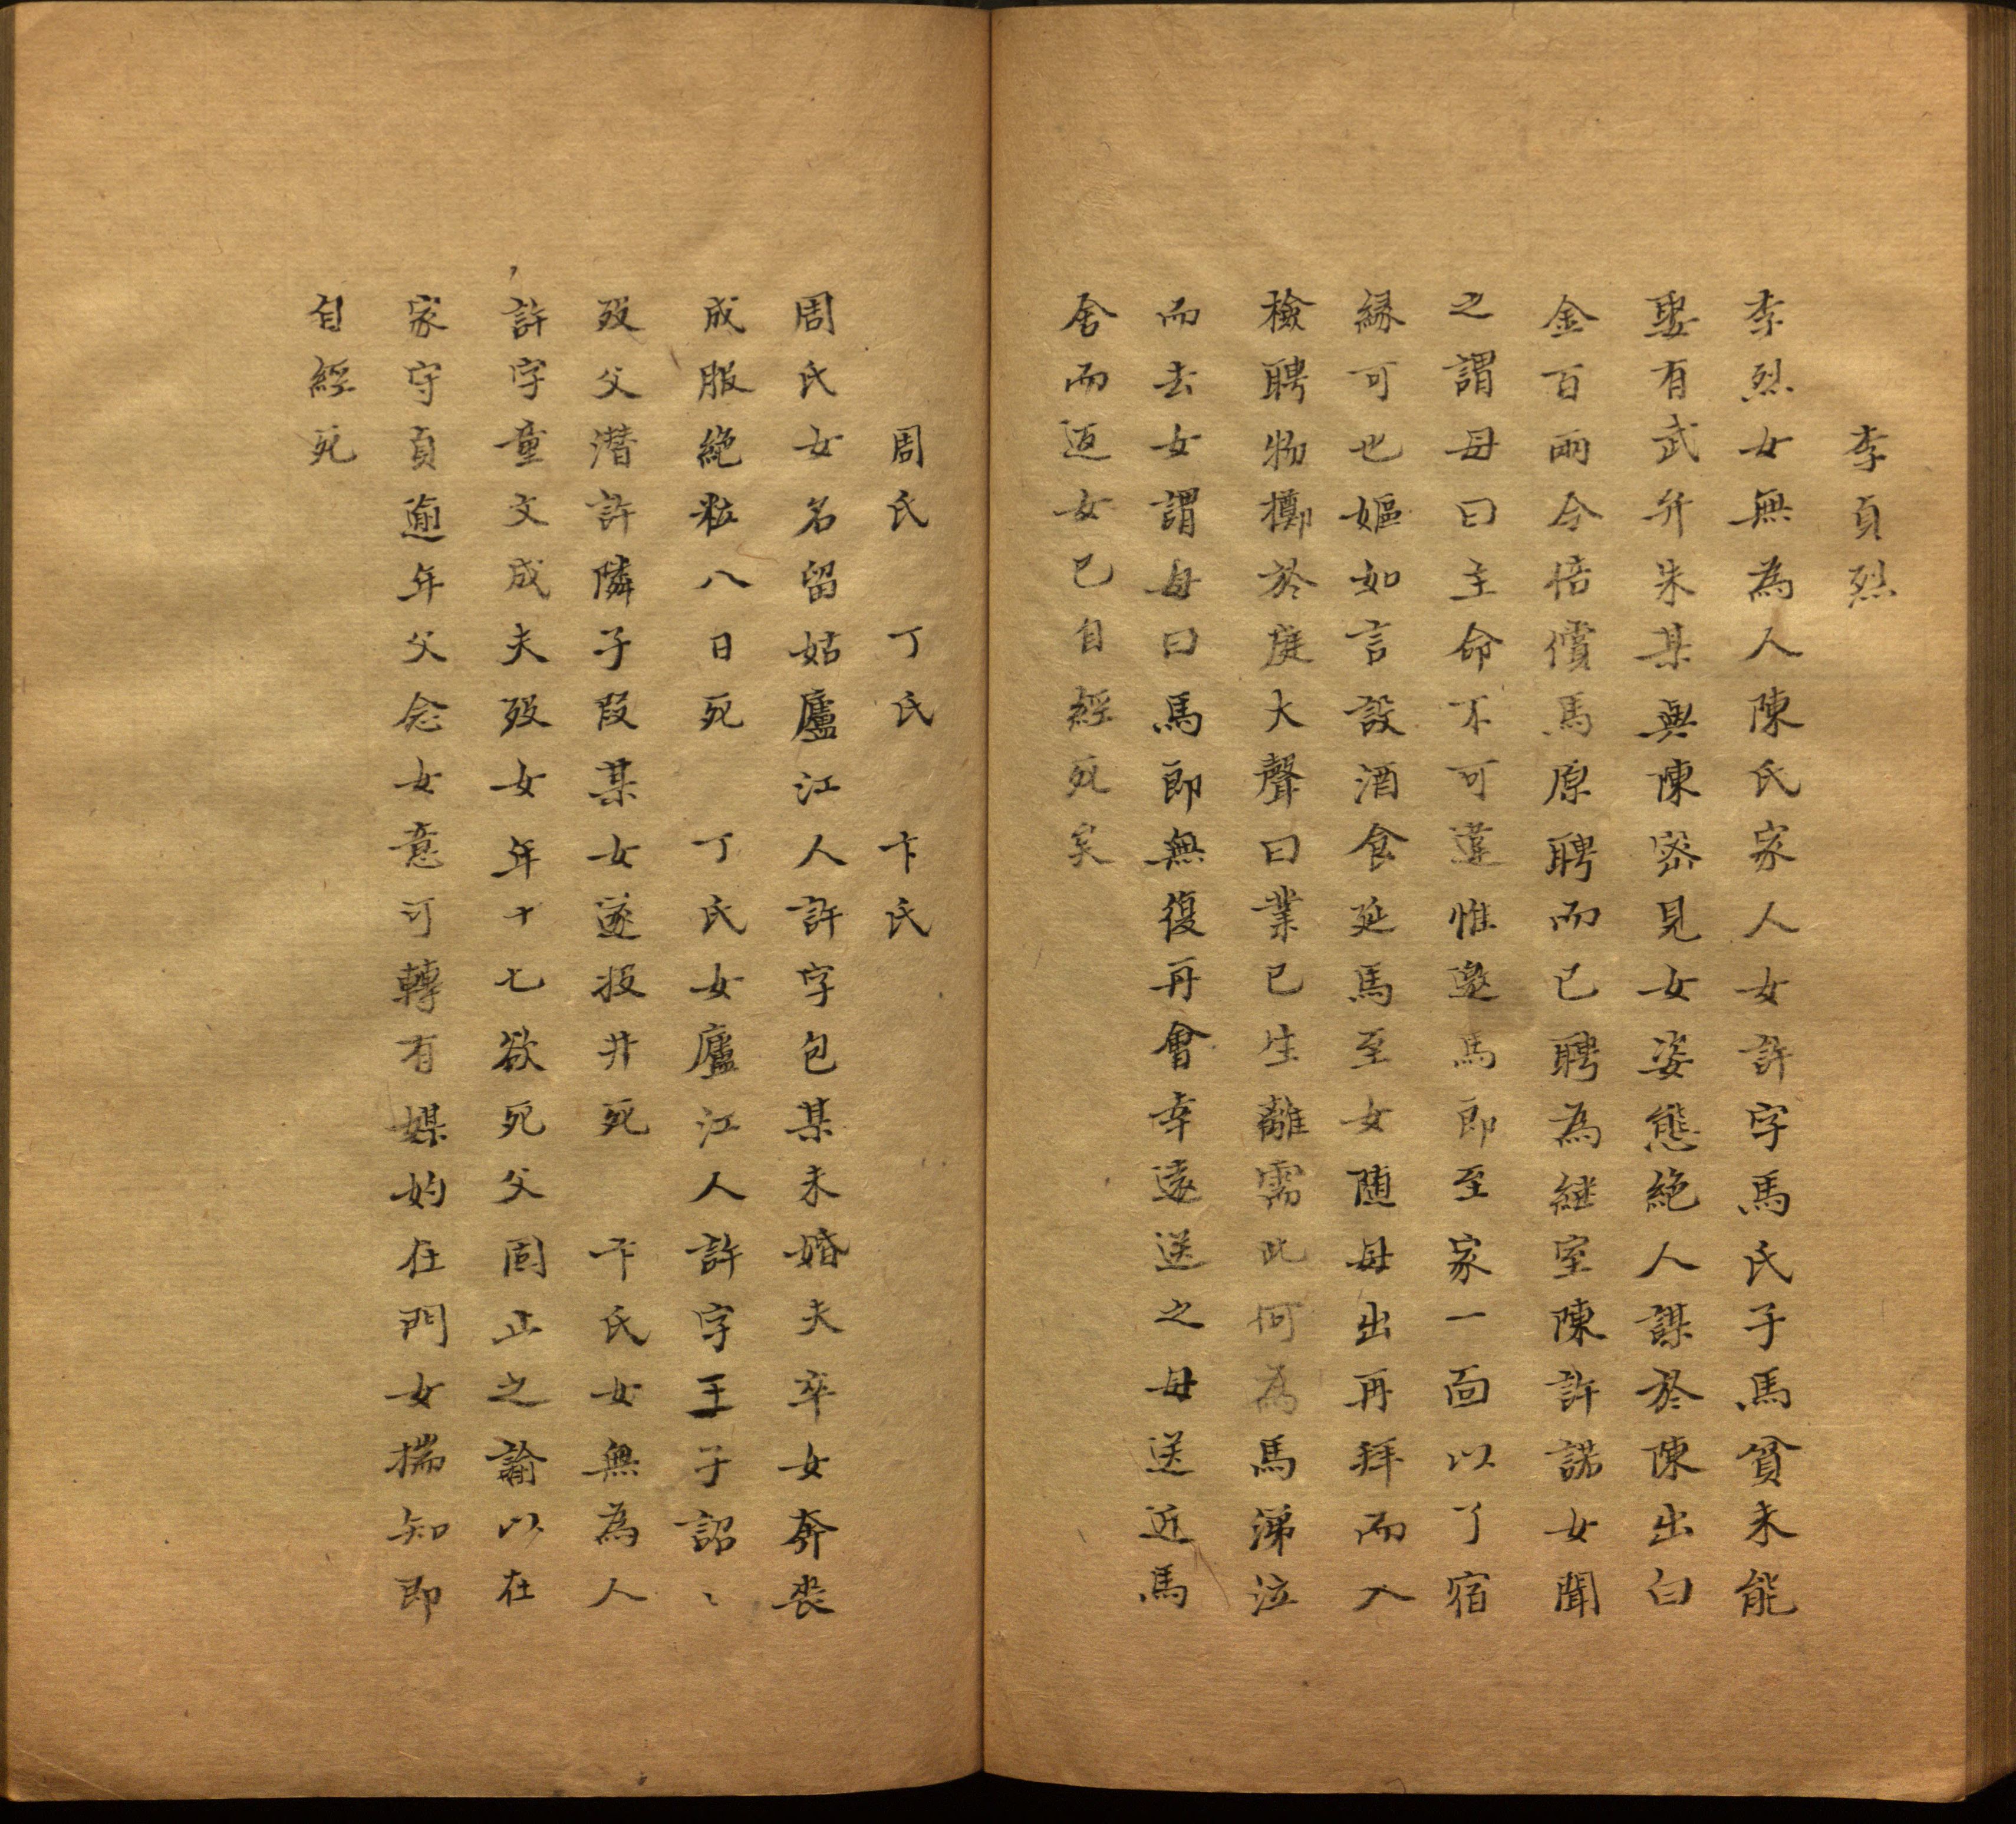 李貞烈
李烈女無為人陳氏家人女許字馬氏子馬貧未能
娶有武弁朱某與陳宻見女姿態絶人謀於陳出白
金百兩令倍償馬原聘而已聘為継室陳許諾女聞
之謂母曰主命不可違惟邀馬即至家一面以了宿
縁可也嫗如言設酒食延馬至女随母出再拜而入
檢聘物擲於庭大聲曰業已生離需此何為馬涕泣
而去女謂母曰馬郎無復再會幸遠送之母送近馬
舍而返女已自經死矣
周氏　丁氏　卞氏
周氏女名留姑廬江人許字包某未婚夫卒女奔喪
成服絶粒八日死　丁氏女廬江人許字王子詔〻
殁父潛許隣子段某女遂投井死　卞氏女無為人
許字童文成夫殁女年十七欲死父固止之諭以在
家守貞逾年父念女意可轉有媒妁在門女揣知即
自經死